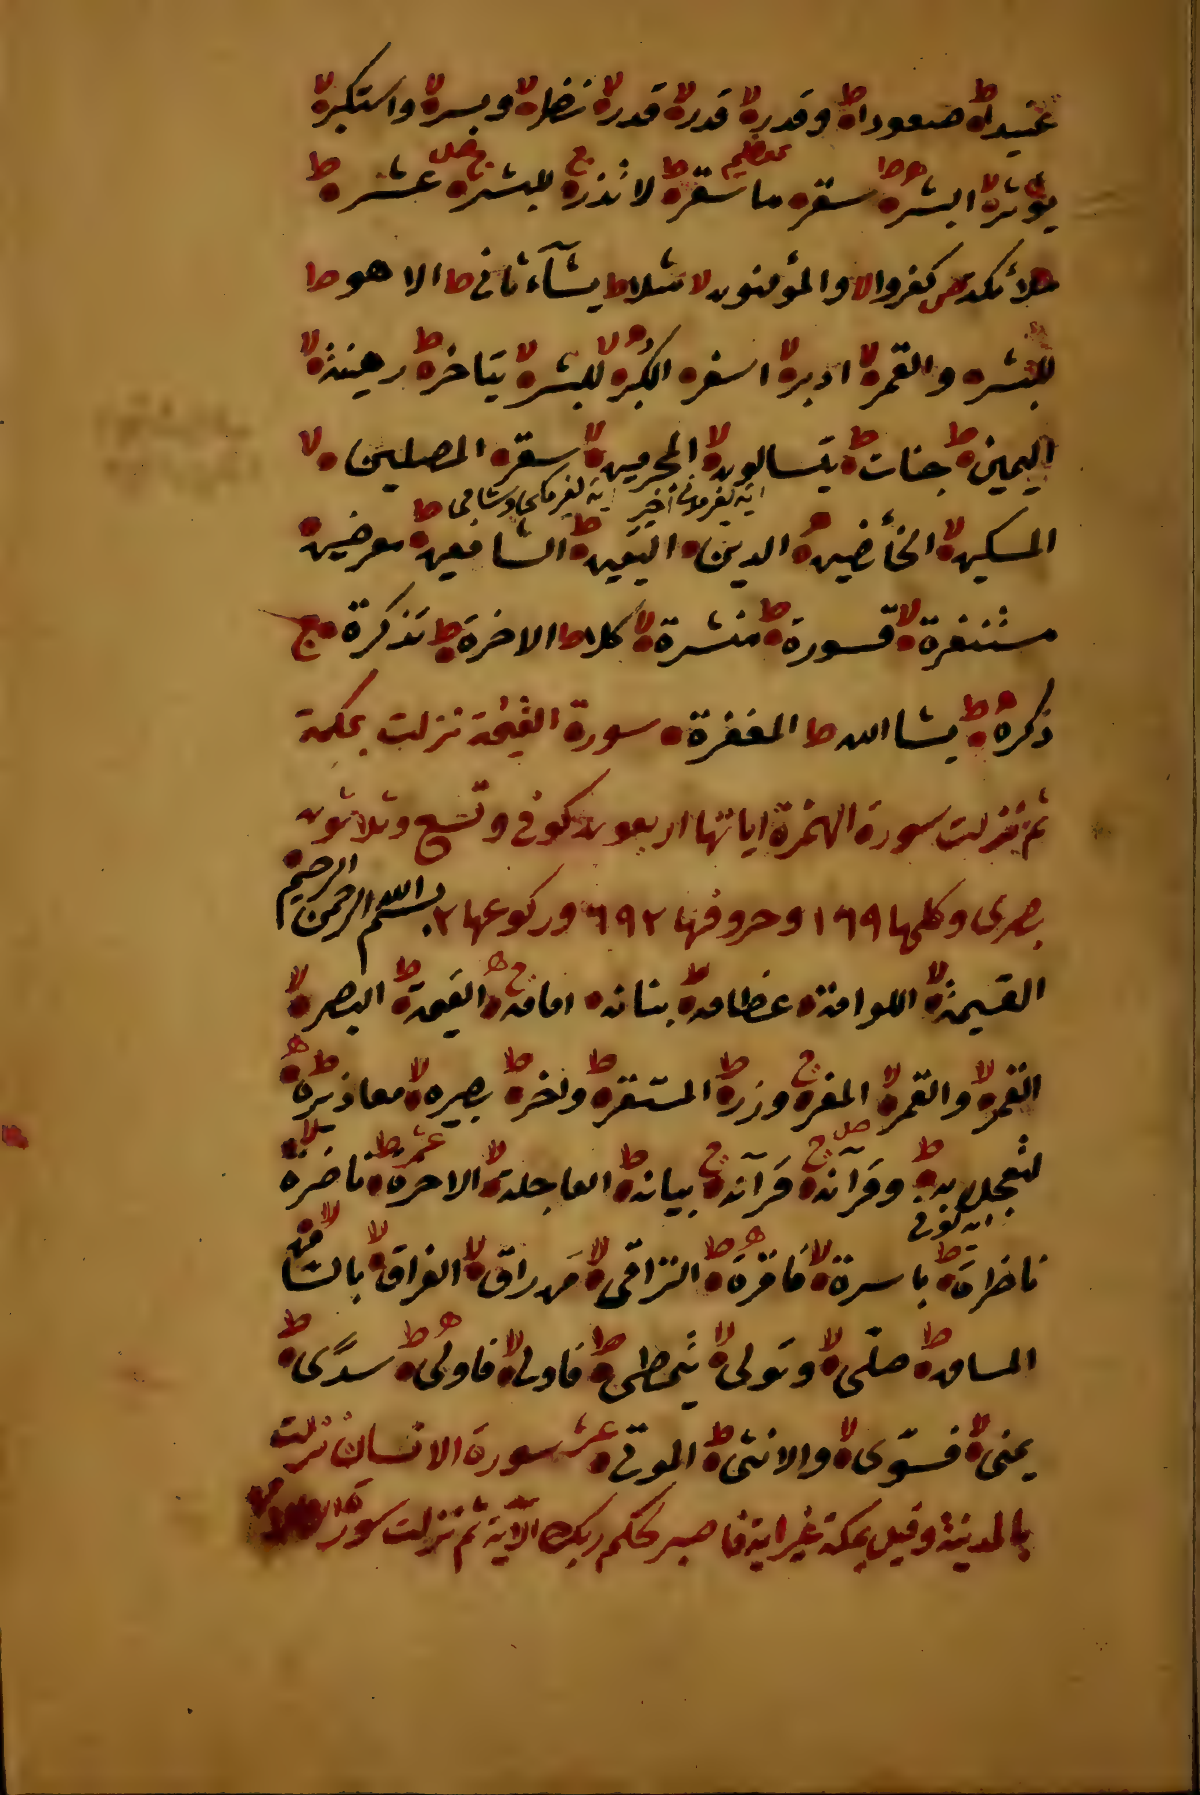 عنيدا ط صعودا ط وقدر لا قدر لا قدر لا نظر لا وبسر لا واستكبر لا
يؤثر لا البشر ط سقر ما سقر ط لا تذر ج للبشر ج عشر ط
ملائكة ص كفروا لا والمؤمنون لا مثلا ط يشآء ثانى ط الا هو ط
للبشر والقمر لا ادبر لا اسفر الكبر لا للبشر لا يتاخر ط رهينة لا
اليمين ط جنات ط يتسالون لا المجرمين لا سقر المصلين لا
المسكين لا الخائضين الدين اليقين ط الشافعين ط معرضين
مستنفرة لا قسورة ط منشرة لا كلا ط الاخرة ط تذكرة ج
ذكره ط يشا الله ط المغفرة سورة القيمة نزلت بمكة
ثم نزلت سورة الهمزة اياتها اربعون كوفى وتسع وثلاثون
بصرى وكلمها ١٦٩ وحروفها ٦٩٢ وركوعها ٢ بسم الله الرحمن الرحيم
القيمة لا اللوامة عظامه ط بنانه امامه ج القيمة ط البصر لا
القمر لا والقمر لا المفر ج وزر ط المستقر ط واخر ط بصيره لا معاذيره ط
لتعجل به ط وقرآنه ج قرآنه ج بيانه ط العاجلة لا الاخرة ط عشر ناضرة لا
اية كوفى
ناظرة ط باسرة لا فاقرة ط التراقى لا من راق لا الفراق لا بالساق لا
المساق ط صلى لا وتولى لا يتمطى ط فاولى لا فاولى ط سدًى ط
يمنى لا فسوّى لا والانثى ط الموتى عشر سورة الانسان نزلت
بالمدينة وقيل بمكة غير اية فاصبر لحكم ربك الآية ثم نزلت سورة